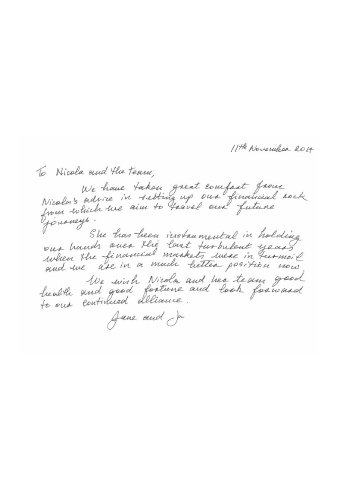 11th November 2014
To Nicola and the Team,
We have taken great comfort from
Nicola's advice in setting up our financial rock
from which we aim to travel our future
journeys.
She has been instrumental in holding
our hands over the last turbulent years
when the financial markets were in turmoil
and we are in a much better position now
We wish Nicola and her team good
health and good fortune and look forward
to our continued alliance.
Jane and